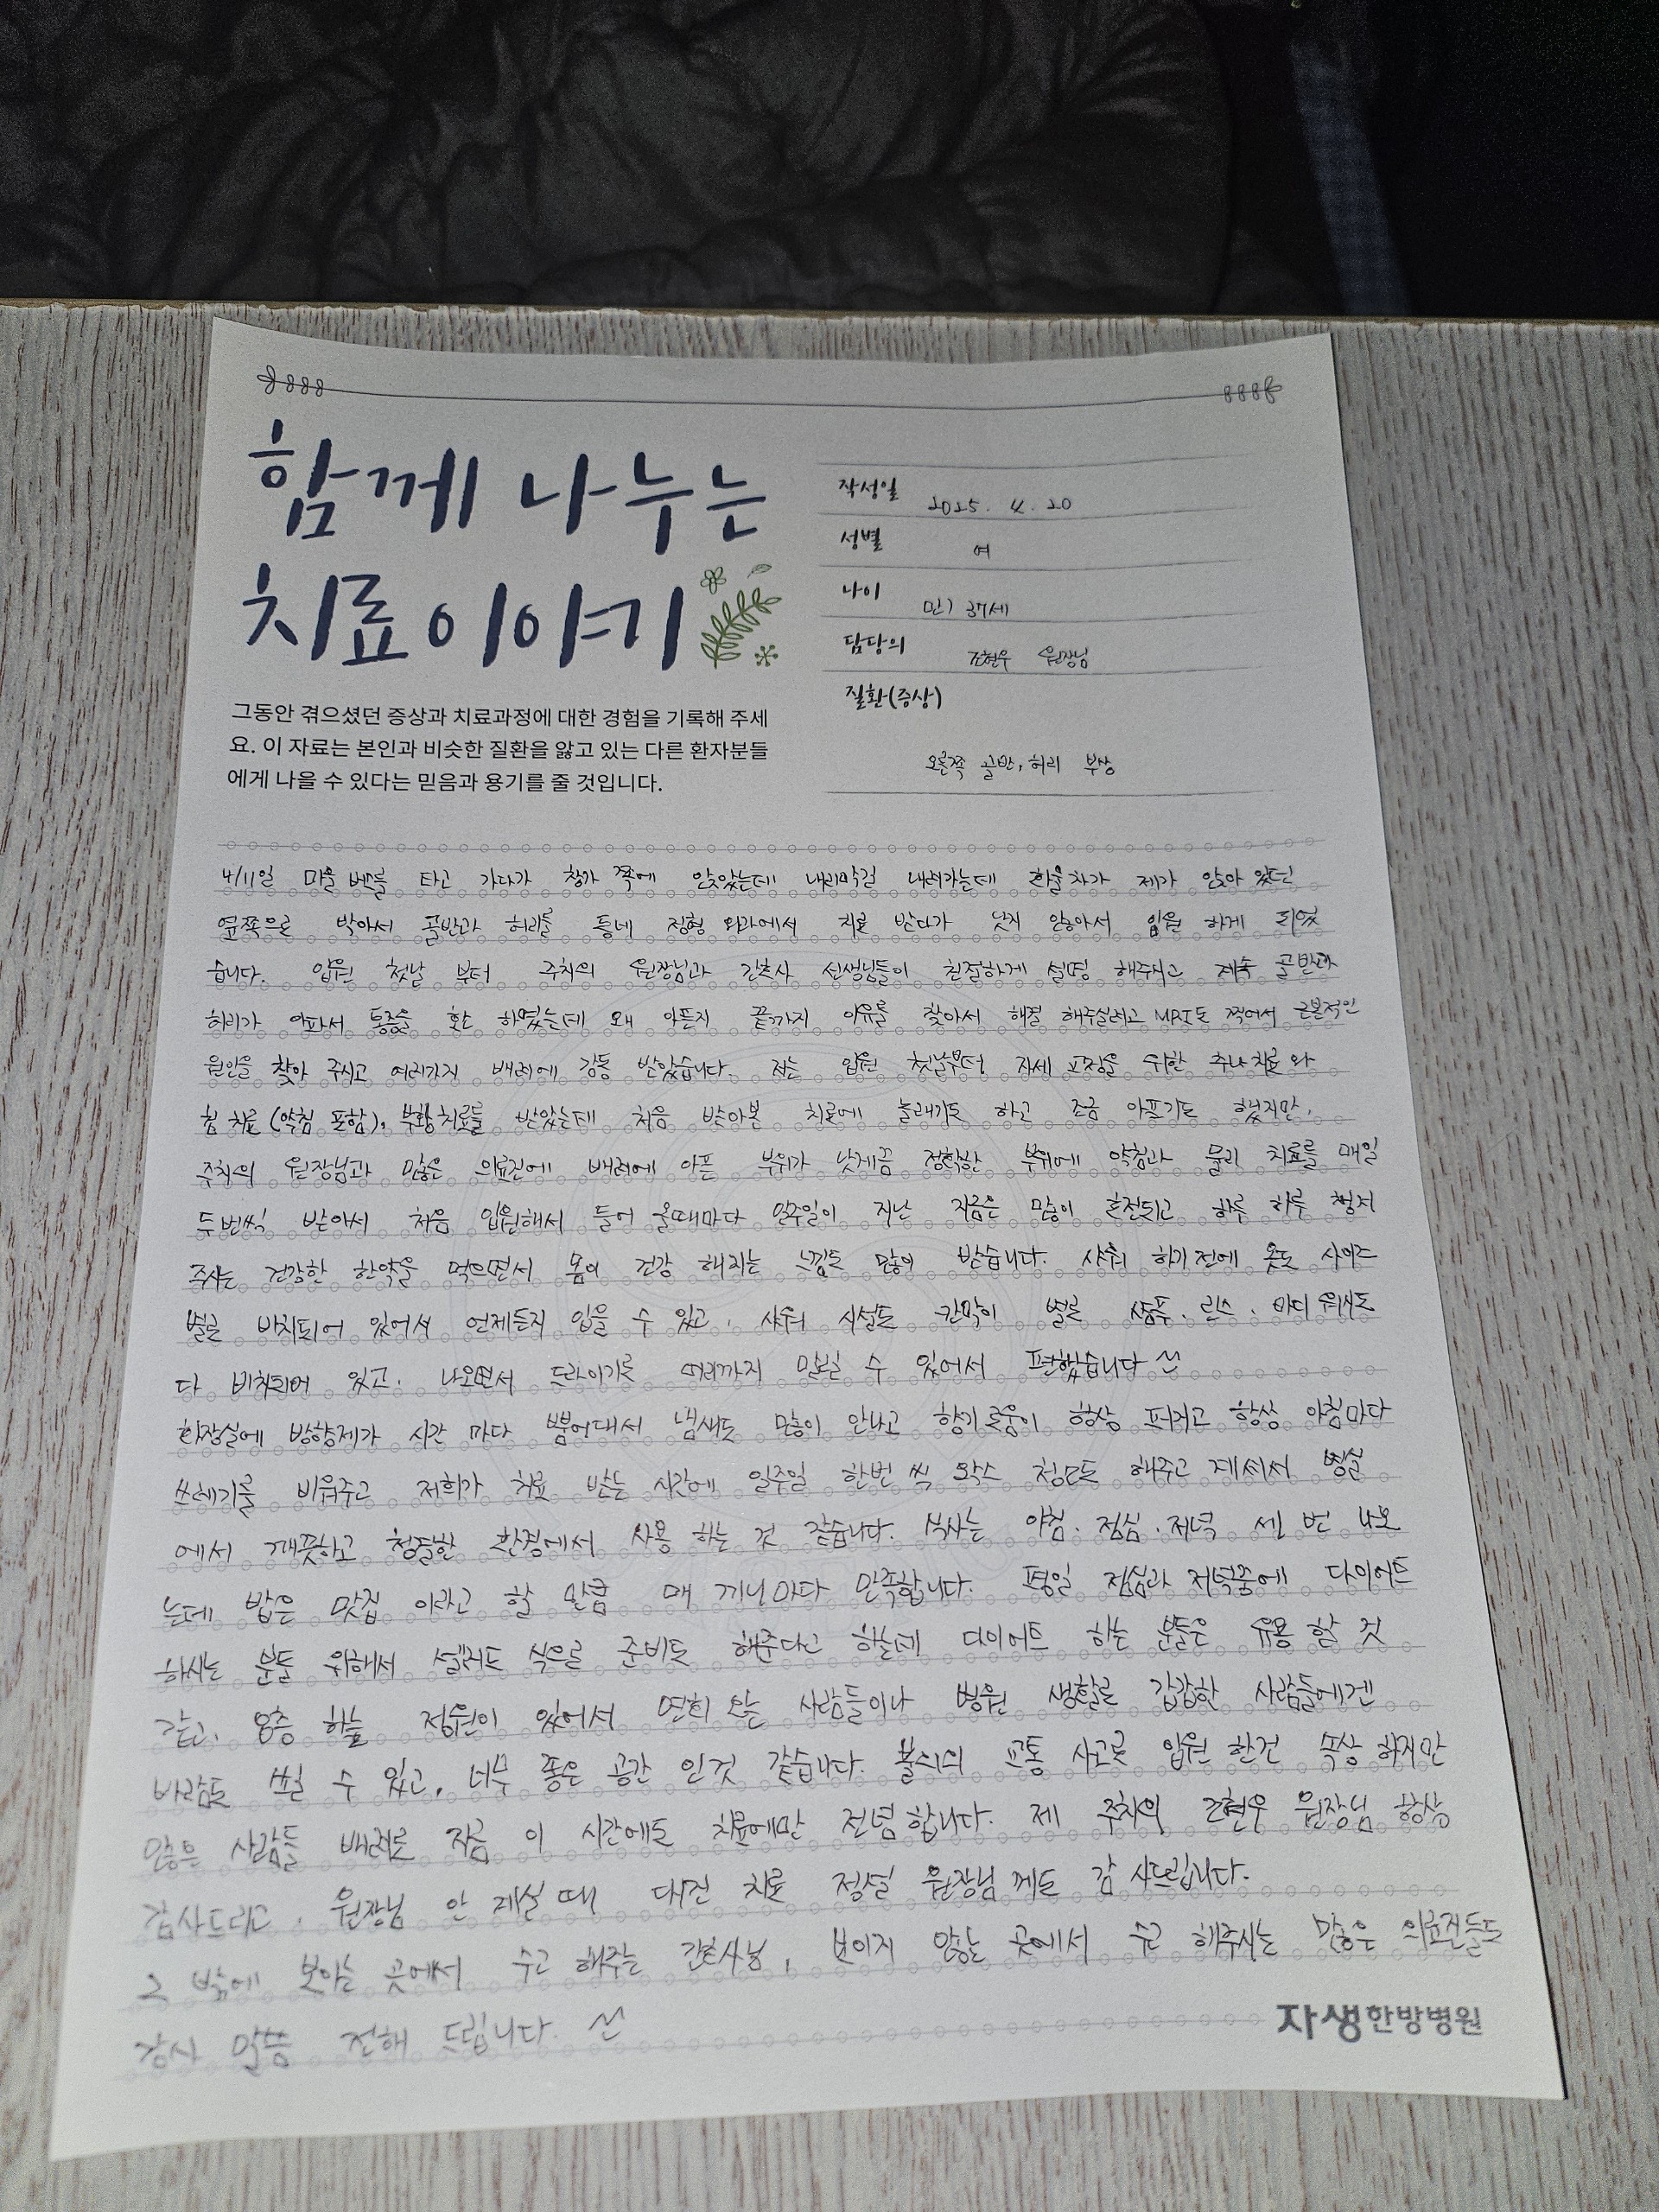 함께 나누는
치료이야기
그동안 겪으셨던 증상과 치료과정에 대한 경험을 기록해 주세
요. 이 자료는 본인과 비슷한 질환을 앓고 있는 다른 환자분들
에게 나을 수 있다는 믿음과 용기를 줄 것입니다.
작성일 2025. 4. 20
성별 여
나이 만) 37세
담당의 조현우 원장님
질환(증상)
오른쪽 골반, 허리 부상
4/11일 마을 버스를 타고 가다가 창가 쪽에 앉았는데 내리막길 내려가는데 화물차가 제가 앉아 있던
옆쪽으로 박아서 골반과 허리를 동네 정형 외과에서 치료 받다가 낫지 않아서 입원 하게 되었
습니다. 입원 첫날 부터 주치의 원장님과 간호사 선생님들이 친절하게 설명 해주시고 계속 골반과
허리가 아파서 통증을 호소 하였는데 왜 아픈지 끝까지 이유를 찾아서 해결 해주실려고 MRI도 찍어서 근본적인
원인을 찾아 주시고 여러가지 배려에 감동 받았습니다. 저는 입원 첫날부터 자세 교정을 위한 추나치료와
침 치료 (약침 포함), 부황치료를 받았는데 처음 받아본 치료에 놀래기도 하고 조금 아프기도 했지만,
주치의 원장님과 많은 의료진에 배려에 아픈 부위가 낫게끔 정확한 부위에 약침과 물리 치료를 매일
두번씩 받아서 처음 입원해서 들어 올때마다 일주일이 지난 지금은 많이 호전되고 하루 하루 챙겨
주시는 건강한 한약을 먹으면서 몸이 건강 해지는 느낌도 많이 받습니다. 샤워 하기전에 옷도 사이즈
별로 비치되어 있어서 언제든지 입을 수 있고, 샤워 시설도 칸막이 별로 샴푸, 린스, 바디 워시도
다 비치되어 있고, 나오면서 드라이기로 머리까지 말릴 수 있어서 편했습니다 ^^
화장실에 방향제가 시간 마다 뿜어대서 냄새도 많이 안나고 향기로움이 항상 퍼지고 항상 아침마다
쓰레기를 비워주고 저희가 치료 받는 시간에 일주일 한번 씩 왁스 청소도 해주고 계셔서 병실
에서 깨끗하고 청결한 환경에서 사용 하는 것 같습니다. 식사는 아침, 점심, 저녁 세 번 나오
는데 밥은 맛집 이라고 할 만큼 매 끼니마다 만족합니다. 평일 점심과 저녁중에 다이어트
하시는 분들 위해서 샐러드 식으로 준비도 해준다고 하는데 다이어트 하는 분들은 유용 할 것
같고, 옥층 하늘 정원이 있어서 사람들이나 병원 생활로 갑갑한 사람들에겐
바람도 쐴 수 있고, 너무 좋은 공간 인것 같습니다. 불의의 교통 사고로 입원 한건 속상 하지만
많은 사람들 배려로 지금 이 시간에도 치료에만 전념합니다. 제 주치의 조현우 원장님 항상
감사드리고, 원장님 안 계실때 대진 치료 원장님 께도 감사드립니다.
그 밖에 보이는 곳에서 수고 해주는 간호사님, 보이지 않는 곳에서 수고 해주시는 많은 의료진들도
감사 말씀 전해 드립니다. ^^
자생한방병원